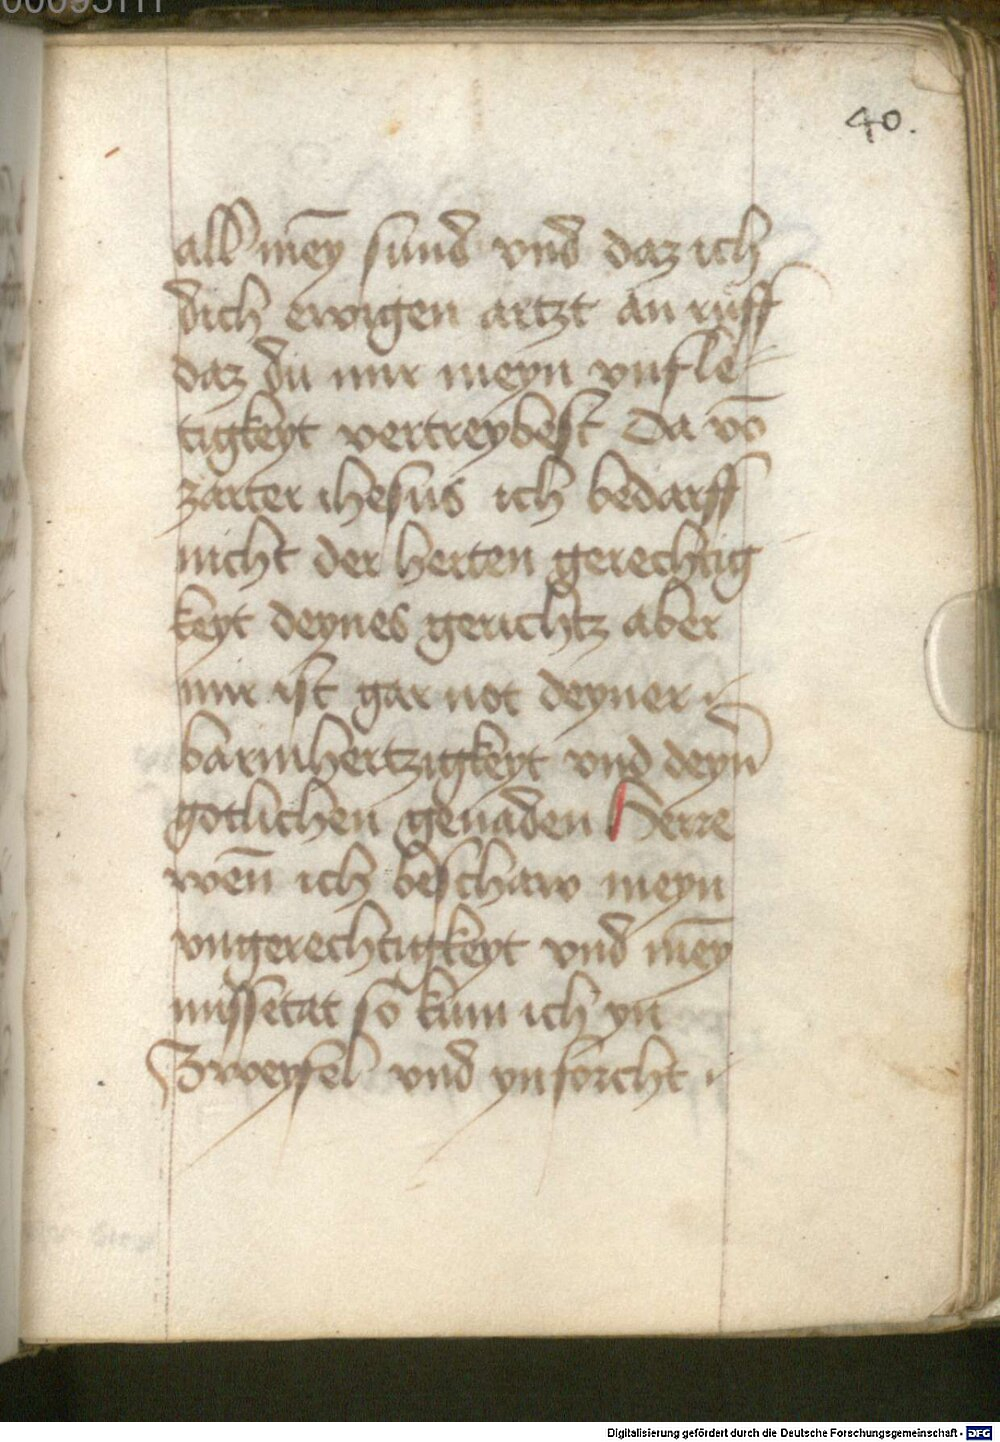 40.
all mēy sund vnd daz ich
dich ewigen artzt an ruff
daz du mir meyn vnfle-
tigkeyt vertreybest Da vō
zarter ihesus ich bedarff
nicht der herten gerechtig
keyt deynes gerichtz aber
mir ist gar not deyner
barmhertzigkeyt vnd deyn̄
gotlichen genaden Herre
wen̄ ich beschaw meyn
vngerechtigkeyt vnd mēy
missetat so kum ich yn
Zweyfel vnd yn forcht
Digitalisierung gefördert durch die Deutsche Forschungsgemeinschaft - DFG